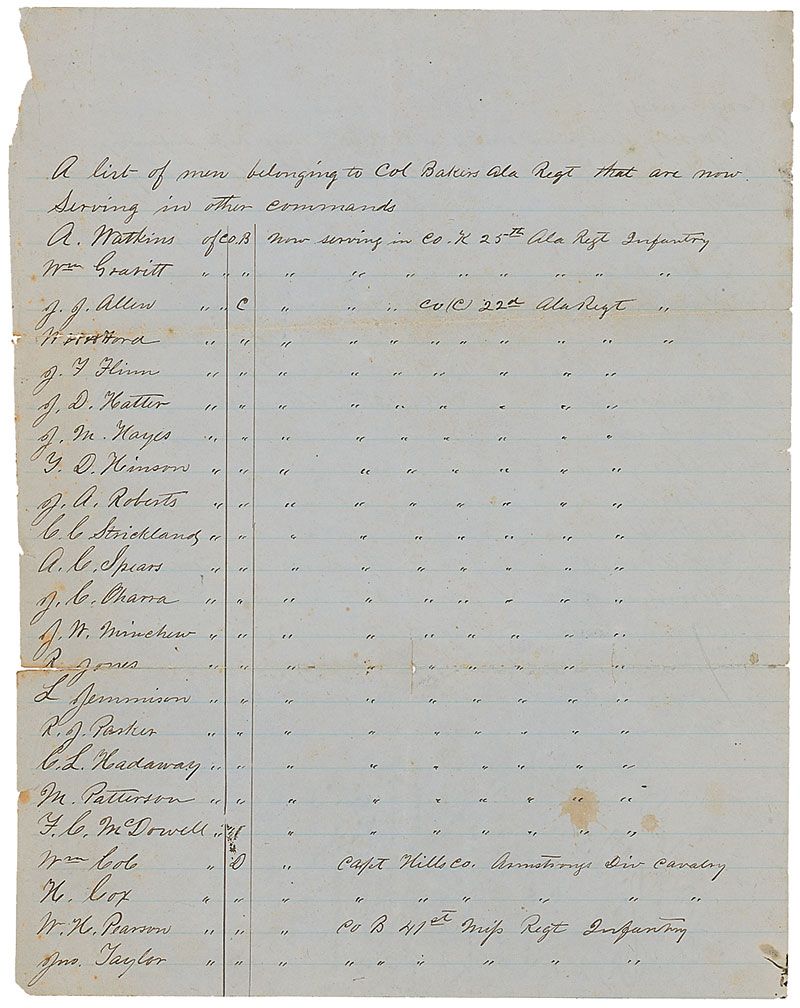 A list of men belonging to Col Bakers Ala Regt that are now
Serving in other commands
A. Watkins of Co. B now serving in Co. K 25th Ala Regt Infantry
Wm Gravitt " " " " " " " " " " "
J. J. Allen " " C " " " Co (C) 22d Ala Regt "
Ford " " " " " " " " " " "
J. F Flinn " " " " " " " " "
J. D. Hatter " " " " " " " " "
J. M. Hayes " " " " " " " " "
F. D. Hinson " " " " " " " " "
J. A. Roberts " " " " " " " " "
C. C. Strickland " " " " " " " " "
A. C. Spears " " " " " " " " "
J. C. Oharra " " " " " " " "
J. W. Minchew " " " " " " " " "
R. Jones " " " " " " " " "
L Jemmison " " " " " " " "
R. J. Parker " " " " " " " " "
C. L. Hadaway " " " " " " " "
M. Patterson " " " " " " " " "
F. C. McDowell " " " " " " " "
Wm Cob " D " Capt Hills co. Armstrongs Div cavalry
H. Cox " " " " " " " " " "
W. H. Pearson " " " Co B 41st Miss Regt Infantry
Jno. Taylor " " " " " " " " "